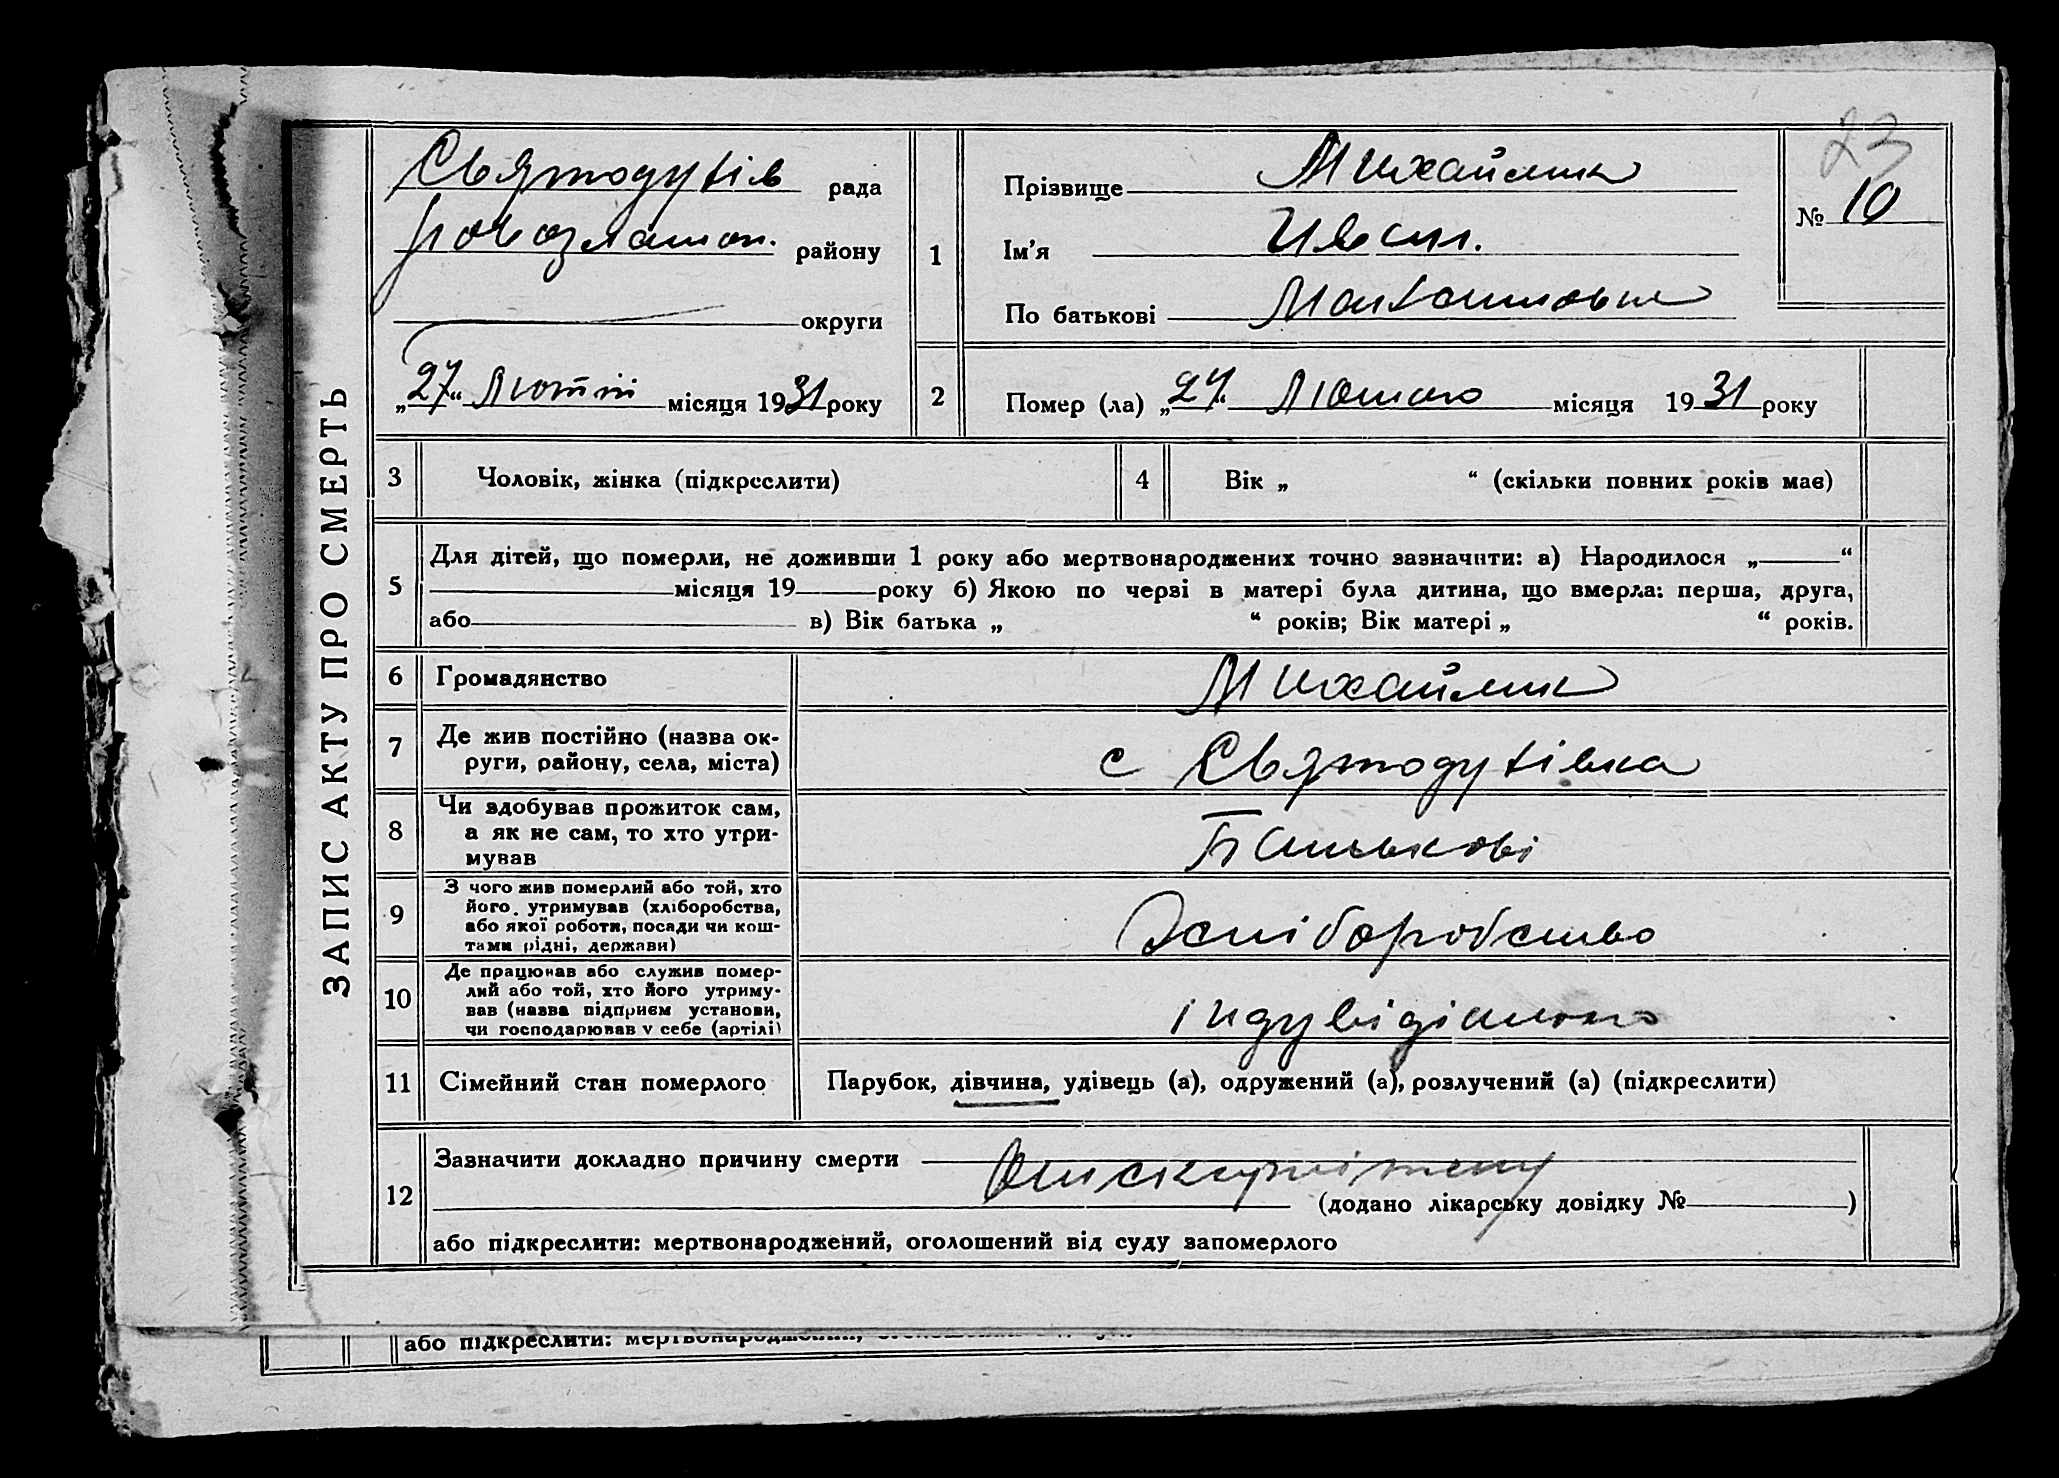 ЗАПИС АКТУ ПРО СМЕРТЬ
23
Святодухів рада
району
округи
„27“ Лютий місяця 1931 року
1
Прізвище Михайлик
Ім'я
По батькові
№ 10
2
Помер (ла) „27“ Лютого місяця 1931 року
3
Чоловік, жінка (підкреслити)
4
Вік „ “ (скільки повних років має)
5
Для дітей, що померли, не доживши 1 року або мертвонароджених точно зазначити: а) Народилося „ “
місяця 19 року б) Якою по черзі в матері була дитина, що вмерла: перша, друга,
або в) Вік батька „ “ років; Вік матері „ “ років.
6
Громадянство
Михайлик
7
Де жив постійно (назва ок-
руги, району, села, міста)
с Святодухівка
8
Чи здобував прожиток сам,
а як не сам, то хто утри-
мував
Батькові
9
З чого жив померлий або той, хто
його утримував (хліборобства,
або якої роботи, посади чи кош-
тами рідні, держави)
Хліборобство
10
Де працював або служив помер-
лий або той, хто його утриму-
вав (назва підприєм установи,
чи господарював у себе (артілі)
11
Сімейний стан померлого
Парубок, дівчина, удівець (а), одружений (а), розлучений (а) (підкреслити)
12
Зазначити докладно причину смерти
(додано лікарську довідку № )
або підкреслити: мертвонароджений, оголошений від суду запомерлого
або підкреслити: